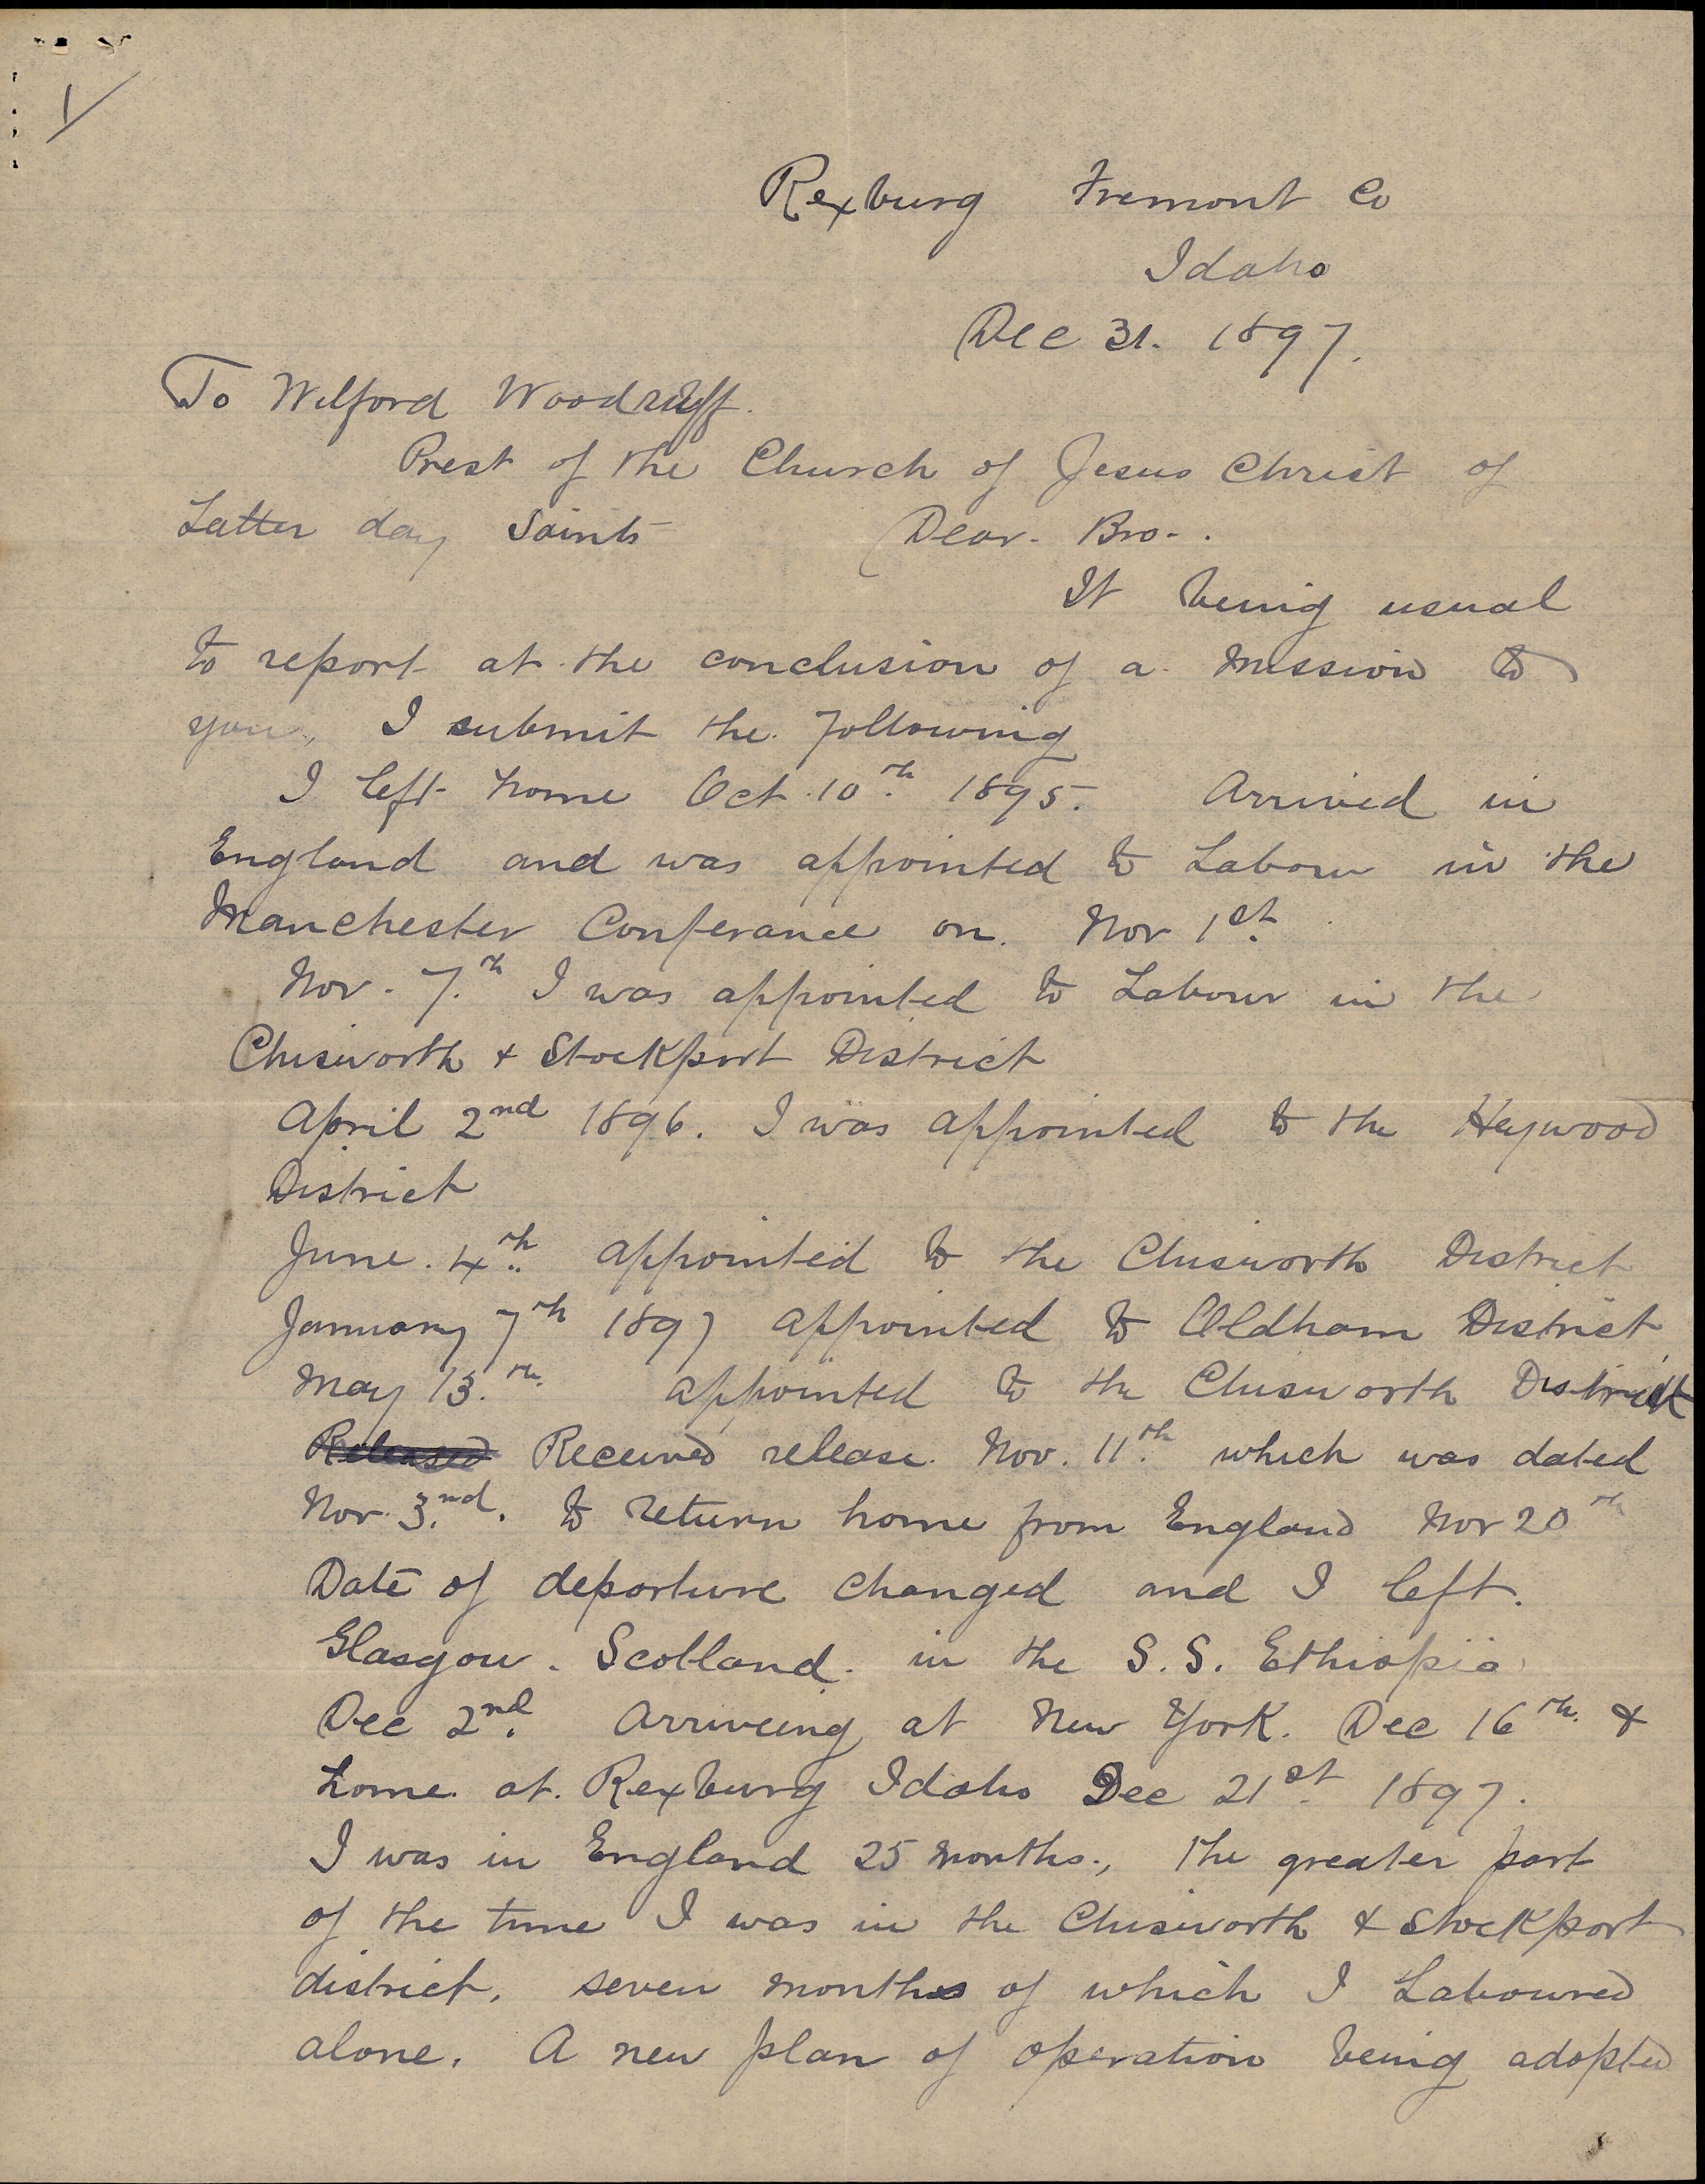 1/
Rexburg Fremont Co
Idaho
Dec 31. 1897.
To Wilford Woodruff.
Prest of the Church of Jesus Christ of
Latter day Saints Dear. Bro-.
It being usual
to report at the conclusion of a mission to
you, I submit the following
I left home Oct 10th 1895. Arrived in
England and was appointed to Labour in the
Manchester Conferance on. Nov 1st.
Nov. 7th I was appointed to Labour in the
Chisworth & Stockport District
April 2nd 1896. I was appointed to the Heywood
District
June. 4th appointed to the Chisworth District
January 7th 1897 appointed to Oldham District
May 13.th appointed to the Chisworth District
Released Received release Nov. 11th which was dated
Nov. 3.nd. to return home from England Nov 20th
Date of departure changed and I left.
Glasgow. Scotland. in the S.S. Ethiopia
Dec 2nd. Arriveing at New York. Dec 16th. &
home at. Rexburg Idaho Dec 21st. 1897.
I was in England 25 months., the greater part
of the time I was in the Chisworth & Stockport
district, seven months of which I Laboured
alone. A new plan of operation being adopted